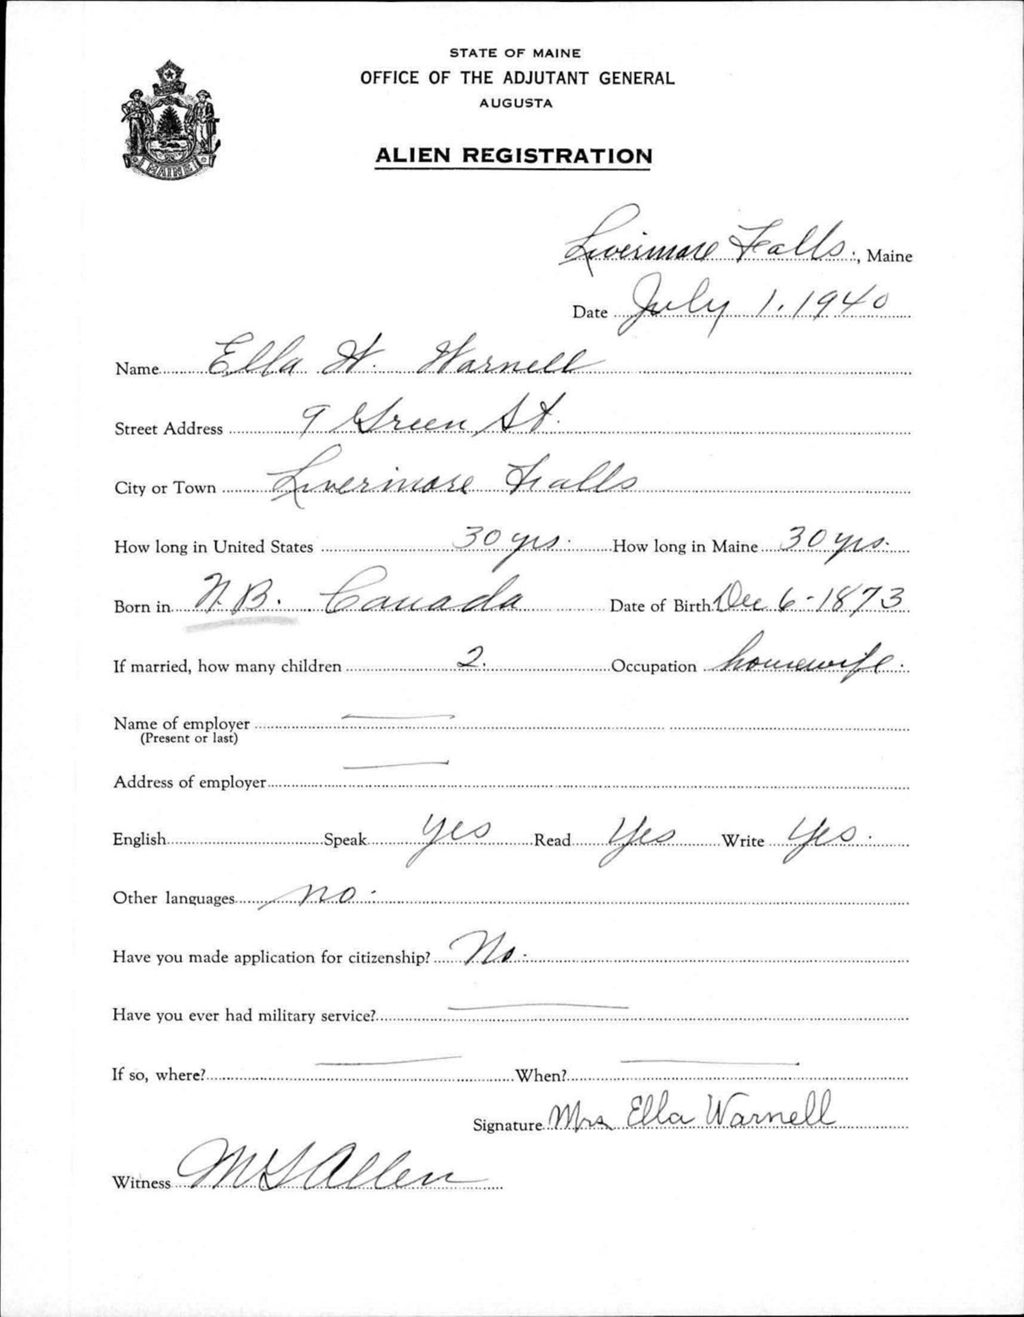 STATE OF MAINE
OFFICE OF THE ADJUTANT GENERAL
AUGUSTA
ALIEN REGISTRATION
MAINE
Livermore Falls, Maine
Date July 1, 1940
Name Ella W. Warnell
Street Address 9 Green St.
City or Town Livermore Falls
How long in United States 30 yrs. How long in Maine 30 yrs.
Born in N.B. Canada Date of Birth Dec 6-1873
If married, how many children 2. Occupation housewife.
Name of employer
(Present or last)
Address of employer
English Speak Yes Read Yes Write Yes.
Other languages no.
Have you made application for citizenship? No.
Have you ever had military service?
If so, where? When?
Signature Mrs Ella Warnell
Witness Allen